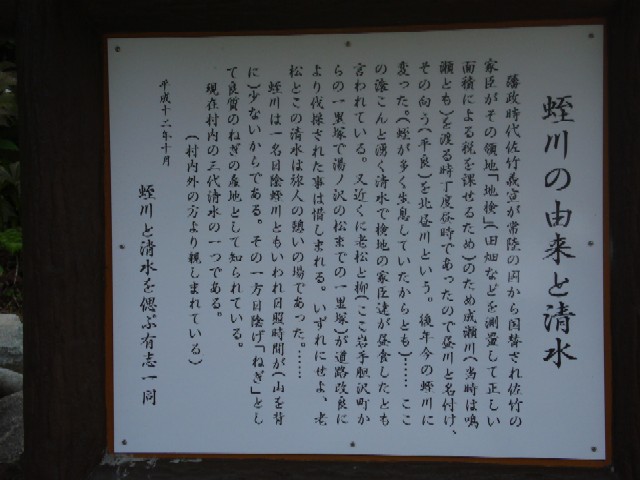 蛭川の由来と清水
藩政時代佐竹義宣が常陸の国から国替され佐竹の
家臣がその領地「地検」(田畑などを測量して正しい
面積による税を課せるため)のため成瀬川(当時は鳴
瀬とも)を渡る時丁度昼時であったので昼川と名付け、
その向う(平良)を北昼川という。後年今の蛭川に
変った。(蛭が多く生息していたからとも)……ここ
の滾こんと湧く清水で検地の家臣達が昼食したとも
言われている。又近くに老松と柳(ここ岩手胆沢町か
らの一里塚で湯ノ沢の松までの一里塚)が道路改良に
より伐採された事は惜しまれる。いずれにせよ、老
松とこの清水は旅人の憩いの場であった。……
蛭川は一名日陰蛭川ともいわれ日照時間が(山を背
に)少ないからである。その一方日陰げ「ねぎ」とし
て良質のねぎの産地として知られている。
現在村内の三代清水の一つである。
(村内外の方より親しまれている)
平成十六年十月
蛭川と清水を偲ぶ有志一同